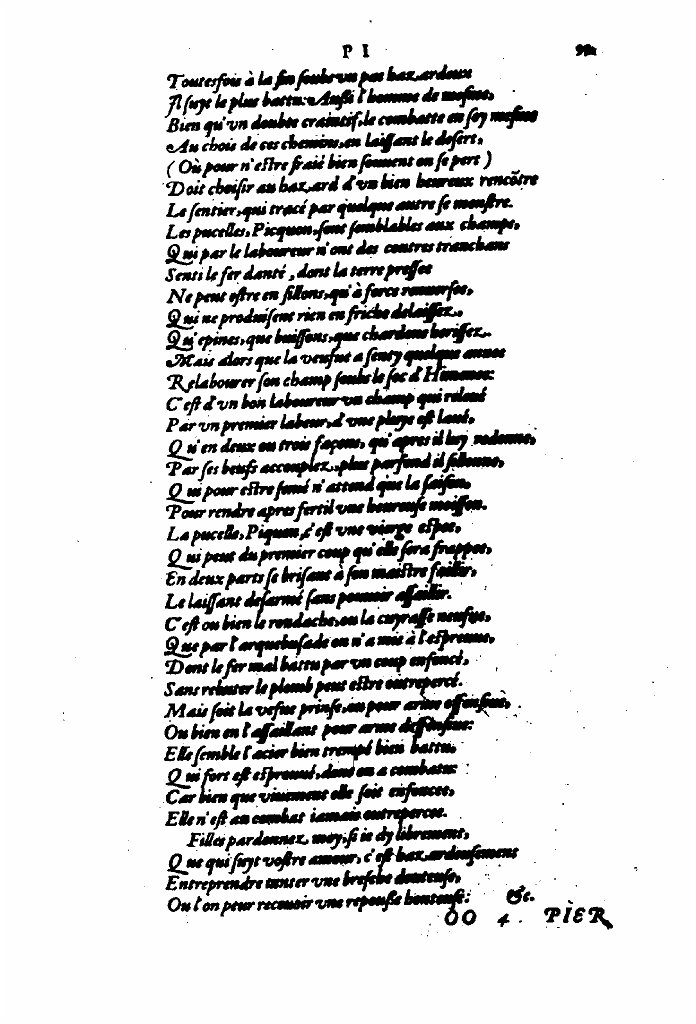 P I
Toutesfois à la fin soubs vn pas haz,ardeux
Il suyt le plus battu: Aussi l'homme de mesme,
Bien qu'vn doubte craintif, le combatte en soy mesme
Au chois de ces chemins, en laissant le desert,
( Où pour n'estre fraié bien souuent on se pert )
Doit choisir au haz,ard d'vn bien heureux rencõtre
Le sentier, qui tracé par quelque autre se monstre.
Les pucelles, Picquon, sont semblables aux champs,
Qui par le laboureur n'ont des coutres tranchans
Senti le fer danté, dont la terre pressee
Ne peut estre en sillons, qu'à force renuersee,
Qui ne produisent rien en friche delaissez,,
Qu'epines, que buissons, que chardons herissez,.
Mais alors que la veufue a senty quelque annee
Relabourer son champ soubs le soc d'Himenee:
C'est d'vn bon laboureur vn champ qui releué
Par vn premier labeur, d'vne pluye est laué,
Qu'en deux ou trois façons, qu'apres il luy redonne,
Par ses beufs accouplez,, plus parfond il sillonne,
Qui pour estre semé n'attend que la saison,
Pour rendre apres fertil vne heureuse moisson.
La pucelle, Piquon, c'est vne vierge espee,
Qui peut du premier coup qu'elle sera frappee,
En deux parts se brisant à son maistre faillir,
Le laissant desarmé sans pouuoir assaillir.
C'est ou bien le rondache, ou la cuyrasse neufue,
Que par l'arquebusade on n'a mis à l'espreuue,
Dont le fer mal battu par vn coup enfoncé,
Sans rebouter le plomb peut estre outrepercé.
Mais soit la vefue prinse, ou pour arme offensiue,
Ou bien en l'assaillant pour arme deffensiue:
Elle semble l'acier bien trempé bien battu,
Qui fort est esprouué, dont on a combatu:
Car bien que viuement elle soit enfoncee,
Elle n'est au combat iamais outrepercee.
Filles pardonnez, moy, si ie dy librement,
Que qui suyt vostre amour, c'est haz,ardeusement
Entreprendre tanter vne bresche douteuse,
Ou l'on peut receuoir vne repousse honteuse: &c.
OO 4 PIER